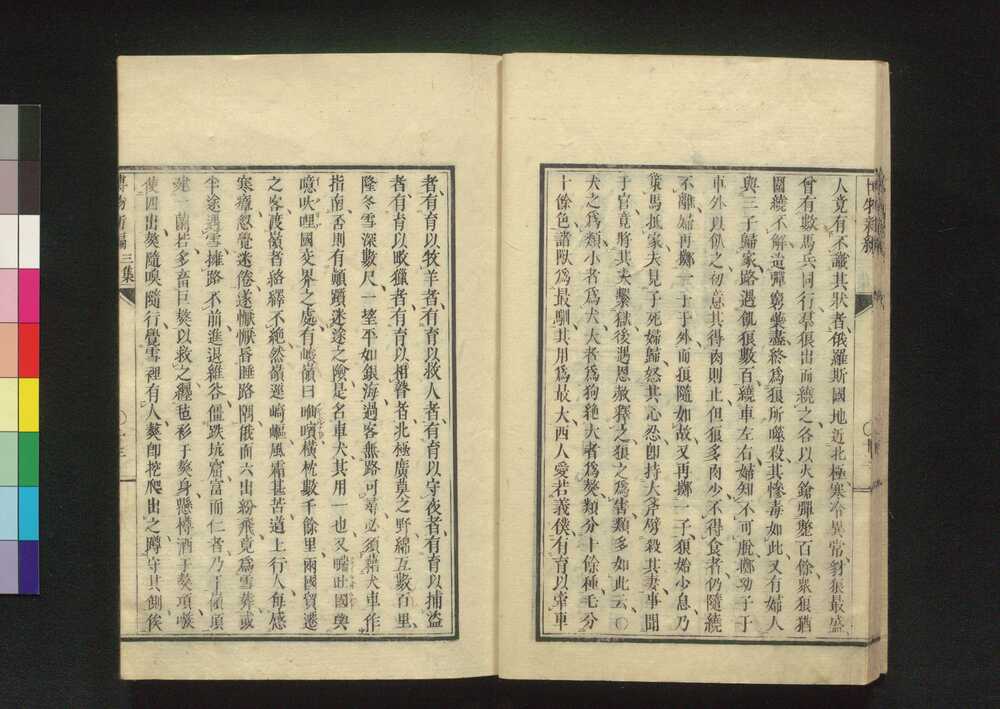 人竟有不識其狀者俄羅斯國地近北極寒冷異常豺狼最盛
曾有數馬兵同行羣狼出而繞之各以火鎗彈斃百餘衆狼猶
圍繞不解迨彈窮藥盡終爲狼所噬殺其慘毒如此又有婦人
與三子歸家路遇飢狼數百繞車左右婦知不可脫擲幼子于
車外以飼之初意其得肉則止但狼多肉少不得食者仍隨繞
不離婦再擲一子于外而狼隨如故又再擲一子狼始少息乃
策馬抵家夫見子死婦歸怒其心忍卽持大斧劈殺其妻事聞
于官竟將其夫繫獄後遇恩赦釋之狼之爲害類多如此云○
犬之爲類小者爲犬大者爲狗絶大者爲獒類分十餘種毛分
十餘色諸獸爲最馴其用爲最大西人愛若義僕有育以牽車
者有育以牧羊者有育以救人者有育以守夜者有育以捕盜
者有育以畋獵者有育以相瞽者北極廣莫之野綿亙數百里
隆冬雪深數尺一望平如銀海過客無路可尋必須藉犬車作
指南否則有頓躓迷途之險是名車犬其用一也又㗣吐國與
噫吠哩國交界之處有峻嶺曰橫枕數千餘里兩國貿遷
之客渡嶺者絡繹不絶然嶺逕崎嶇風霜甚苦道上行人每感
寒瘴忽覺迷倦遂懨懨昏睡路閒俄而六出紛飛竟爲雪葬或
半途遇雪擁路不前進退維谷僵跌坑窬富而仁者乃于嶺頂
建一蘭若多畜巨獒以救之纏毡衫于獒身懸樽酒于獒項嗾
使四出獒隨嗅隨行覺雪裡有人獒卽挖爬出之蹲守其側俟
博物新編三集